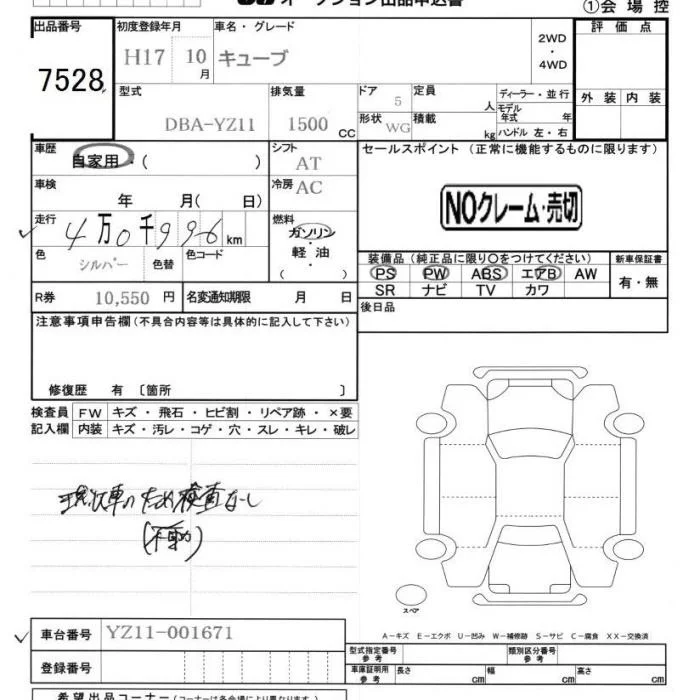 オークション出品申込書
①会場控
出品番号
7528
初度登録年月
H17 10月
車名・グレード
キューブ
2WD
・
4WD
評価点
外装 内装
型式
DBA-YZ11
排気量
1500 CC
ドア 5
形状 WG
定員 人
積載 kg
ディーラー・並行
モデル年式 年
ハンドル 左・右
車歴
自家用・( )
シフト
AT
セールスポイント (正常に機能するものに限ります)
車検
年 月( 日)
冷房
AC
NOクレーム・売切
走行
4万0千996km
燃料
ガソリン
・
軽油
( )
色
シルバー
色替
色コード
装備品 (純正品に限り○をつけてください)
PS PW ABS エアB AW
SR ナビ TV カワ
新車保証書
有・無
R券 10,550 円
名変通知期限 月 日
後日品
注意事項申告欄(不具合内容等は具体的に記入して下さい)
修復歴 有 〔箇所 〕
検査員 FW キズ・飛石・ヒビ割・リペア跡・×要
記入欄 内装 キズ・汚レ・コゲ・穴・スレ・キレ・破レ
現状車のため検査なし
(不動)
スペア
A-キズ E-エクボ U-凹み W-補修跡 S-サビ C-腐食 XX-交換済
車台番号 YZ11-001671
登録番号
型式指定番号 参考
類別区分番号 参考
車庫証明用 参考 長さ cm 幅 cm 高さ cm
希望出品コーナー(コーナーは各会場により異なります)